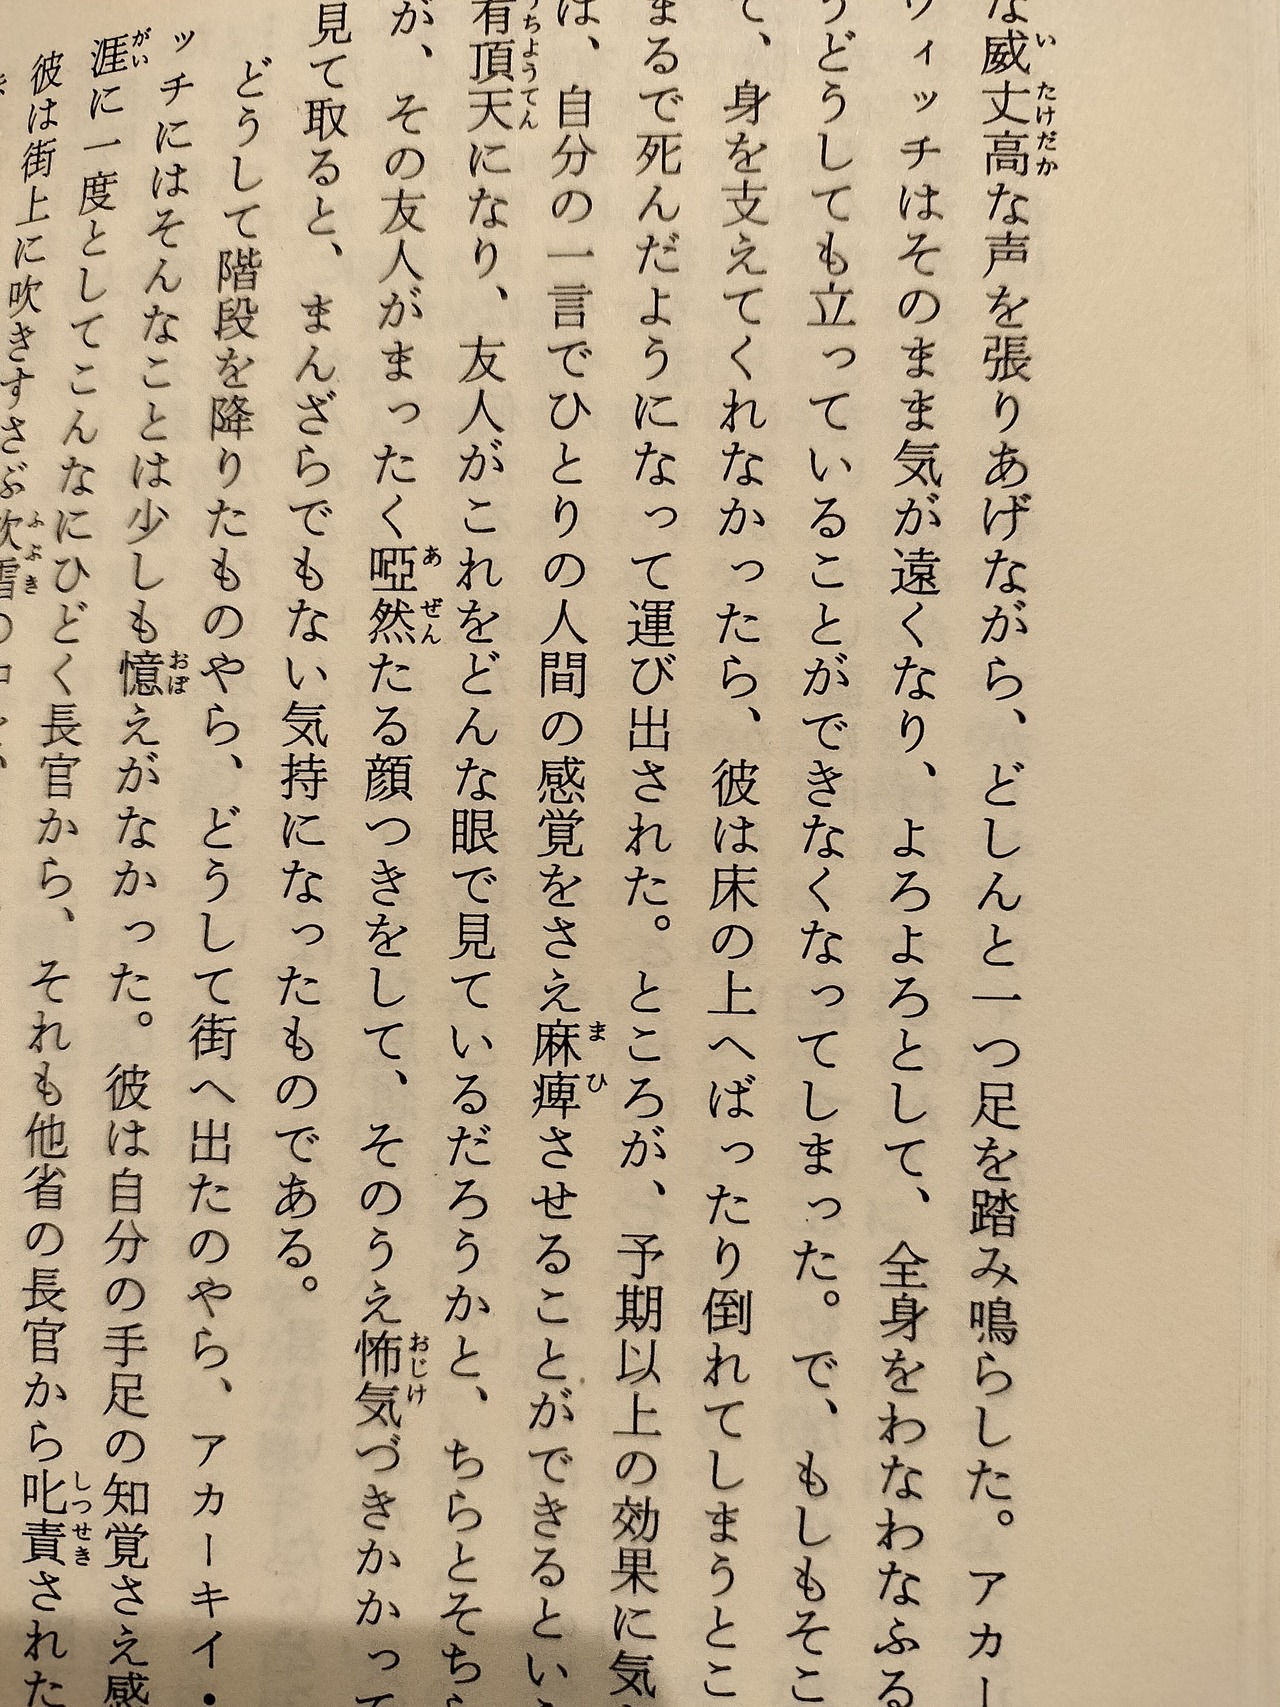 な威丈高な声を張りあげながら、どしんと一つ足を踏み鳴らした。アカー
ウィッチはそのまま気が遠くなり、よろよろとして、全身をわなわなふる
うどうしても立っていることができなくなってしまった。で、もしもそこ
て、身を支えてくれなかったら、彼は床の上へばったり倒れてしまうとこ
まるで死んだようになって運び出された。ところが、予期以上の効果に気
は、自分の一言でひとりの人間の感覚をさえ麻痺させることができるとい
有頂天になり、友人がこれをどんな眼で見ているだろうかと、ちらとそち
が、その友人がまったく啞然たる顔つきをして、そのうえ怖気づきかかって
見て取ると、まんざらでもない気持になったものである。
どうして階段を降りたものやら、どうして街へ出たのやら、アカーキイ・
ッチにはそんなことは少しも憶えがなかった。彼は自分の手足の知覚さえ感
涯に一度としてこんなにひどく長官から、それも他省の長官から叱責された
彼は街上に吹きすさぶ吹雪の中を、